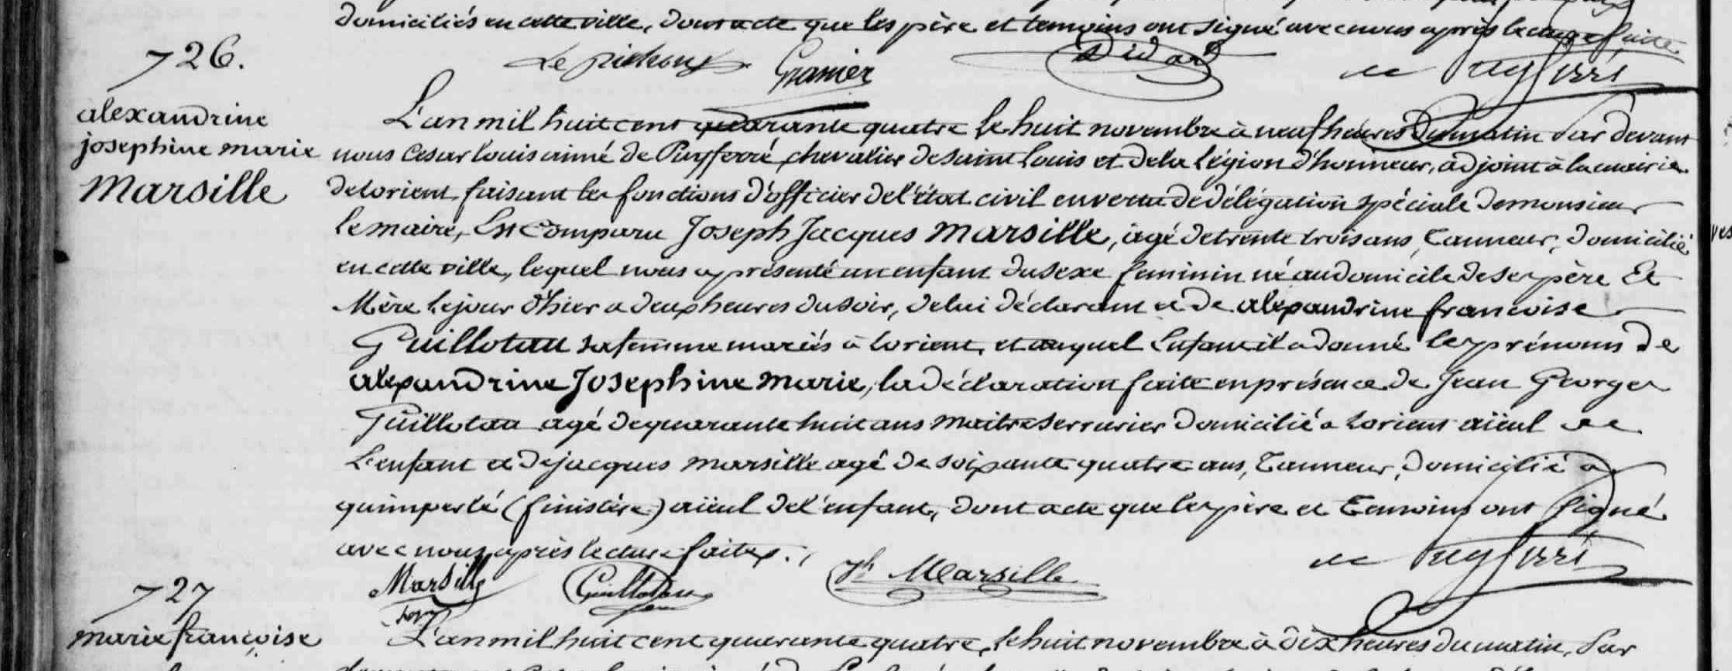 domiciliés en cette ville, dont acte que les père et temoins ont signé avec nous après lecture faite
726.
Le pichoux Granier Didard de Puyferré
alexandrine
josephine marie
Marsille
L'an mil huit cent quarante quatre le huit novembre à neuf heures du matin Par devant
nous Cesar louis aimé de Puyferré, chevalier de saint louis et de la légion d'honneur, adjoint à la mairie
de lorient faisant les fonctions d'officier de l'état civil en vertu de délégation spéciale de monsieur
le maire, Est comparu Joseph Jacques Marsille, agé de trente trois ans, Tanneur, domicilié
en cette ville, lequel nous a présenté un enfant du sexe feminin né au domicile de ses père Et
Mère le jour d'hier a deux heures du soir, de lui déclarant et de alexandrine francoise
Guillotau sa femme mariés à lorient, et auquel Enfant il a donné les prénoms de
alexandrine Josephine marie, la déclaration faite en présence de Jean George
Guillotau agé de quarante huit ans maitre serrurier domicilié a lorient aïeul de
L'enfant et de jacques marsille agé de soixante quatre ans, Tanneur, domicilié a
quimperlé (finistère) aïeul de l'enfant, dont acte que les père et Temoins ont signé
avec nous après lecture faite.
Marsille Guillotau Jh Marsille de Puyferré
727
marie françoise
L'an mil huit cent quarante quatre, le huit novembre à dix heures du matin, Par